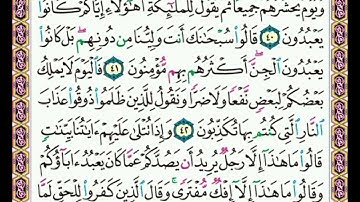 وَيَوْمَ يَحْشُرُهُمْ جَمِيعًا ثُمَّ يَقُولُ لِلْمَلَٰٓئِكَةِ أَهَٰٓؤُلَآءِ إِيَّاكُمْ كَانُوا۟
يَعْبُدُونَ ٤٠ قَالُوا۟ سُبْحَٰنَكَ أَنتَ وَلِيُّنَا مِن دُونِهِم بَلْ كَانُوا۟
يَعْبُدُونَ ٱلْجِنَّ أَكْثَرُهُم بِهِم مُّؤْمِنُونَ ٤١ فَٱلْيَوْمَ لَا يَمْلِكُ
بَعْضُكُمْ لِبَعْضٍ نَّفْعًا وَلَا ضَرًّا وَنَقُولُ لِلَّذِينَ ظَلَمُوا۟ ذُوقُوا۟ عَذَابَ
ٱلنَّارِ ٱلَّتِى كُنتُم بِهَا تُكَذِّبُونَ ٤٢ وَإِذَا تُتْلَىٰ عَلَيْهِمْ ءَايَٰتُنَا بَيِّنَٰتٍ
قَالُوا۟ مَا هَٰذَآ إِلَّا رَجُلٌ يُرِيدُ أَن يَصُدَّكُمْ عَمَّا كَانَ يَعْبُدُ ءَابَآؤُكُمْ
وَقَالُوا۟ مَا هَٰذَآ إِلَّآ إِفْكٌ مُّفْتَرًى وَقَالَ ٱلَّذِينَ كَفَرُوا۟ لِلْحَقِّ لَمَّا